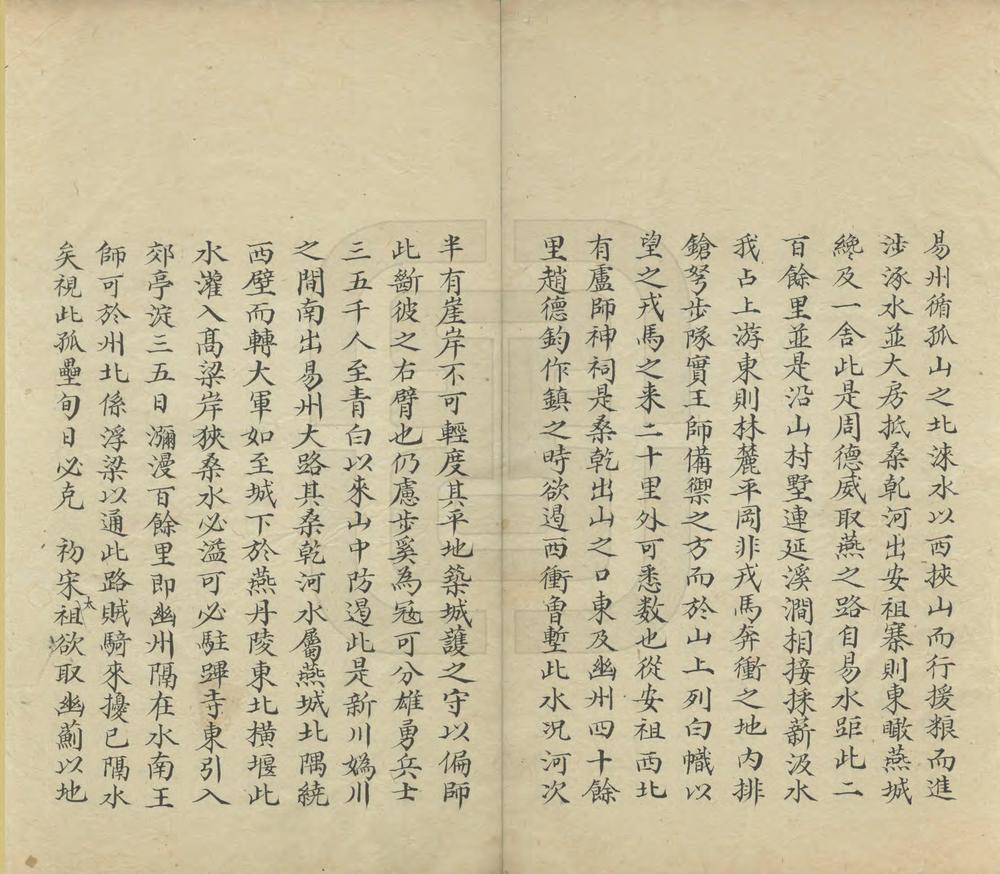 易州循孤山之北涞水以西挾山而行援粮而進
涉涿水並大房抵桑乹河出安祖寨則東瞰燕城
纔及一舍此是周德威取燕之路自易水距此二
百餘里並是沿山村墅連延溪澗相接採薪汲水
我占上游東則林麓平岡非戎馬奔衝之地内排
鎗弩步隊實王師備禦之方而於山上列白幟以
望之戎馬之来二十里外可悉数也從安祖西北
有盧師神祠是桑乾出山之口東及幽州四十餘
里趙德鈞作鎮之時欲遏西衝曾塹此水况河次
半有崖岸不可輕度其平地築城護之守以偏師
此斷彼之右臂也仍慮步奚為冦可分雄勇兵士
三五千人至青白以來山中防遏此是新川媯川
之間南出易州大路其桑乾河水屬燕城北隅繞
西壁而轉大軍如至城下於燕丹陵東北橫堰此
水灌入髙梁岸狹桑水必溢可必駐蹕寺東引入
郊亭淀三五日瀰漫百餘里即幽州隔在水南王
師可於州北係浮梁以通此路賊騎來擾已隔水
矣視此孤壘旬日必克　初宋太祖欲取幽薊以地